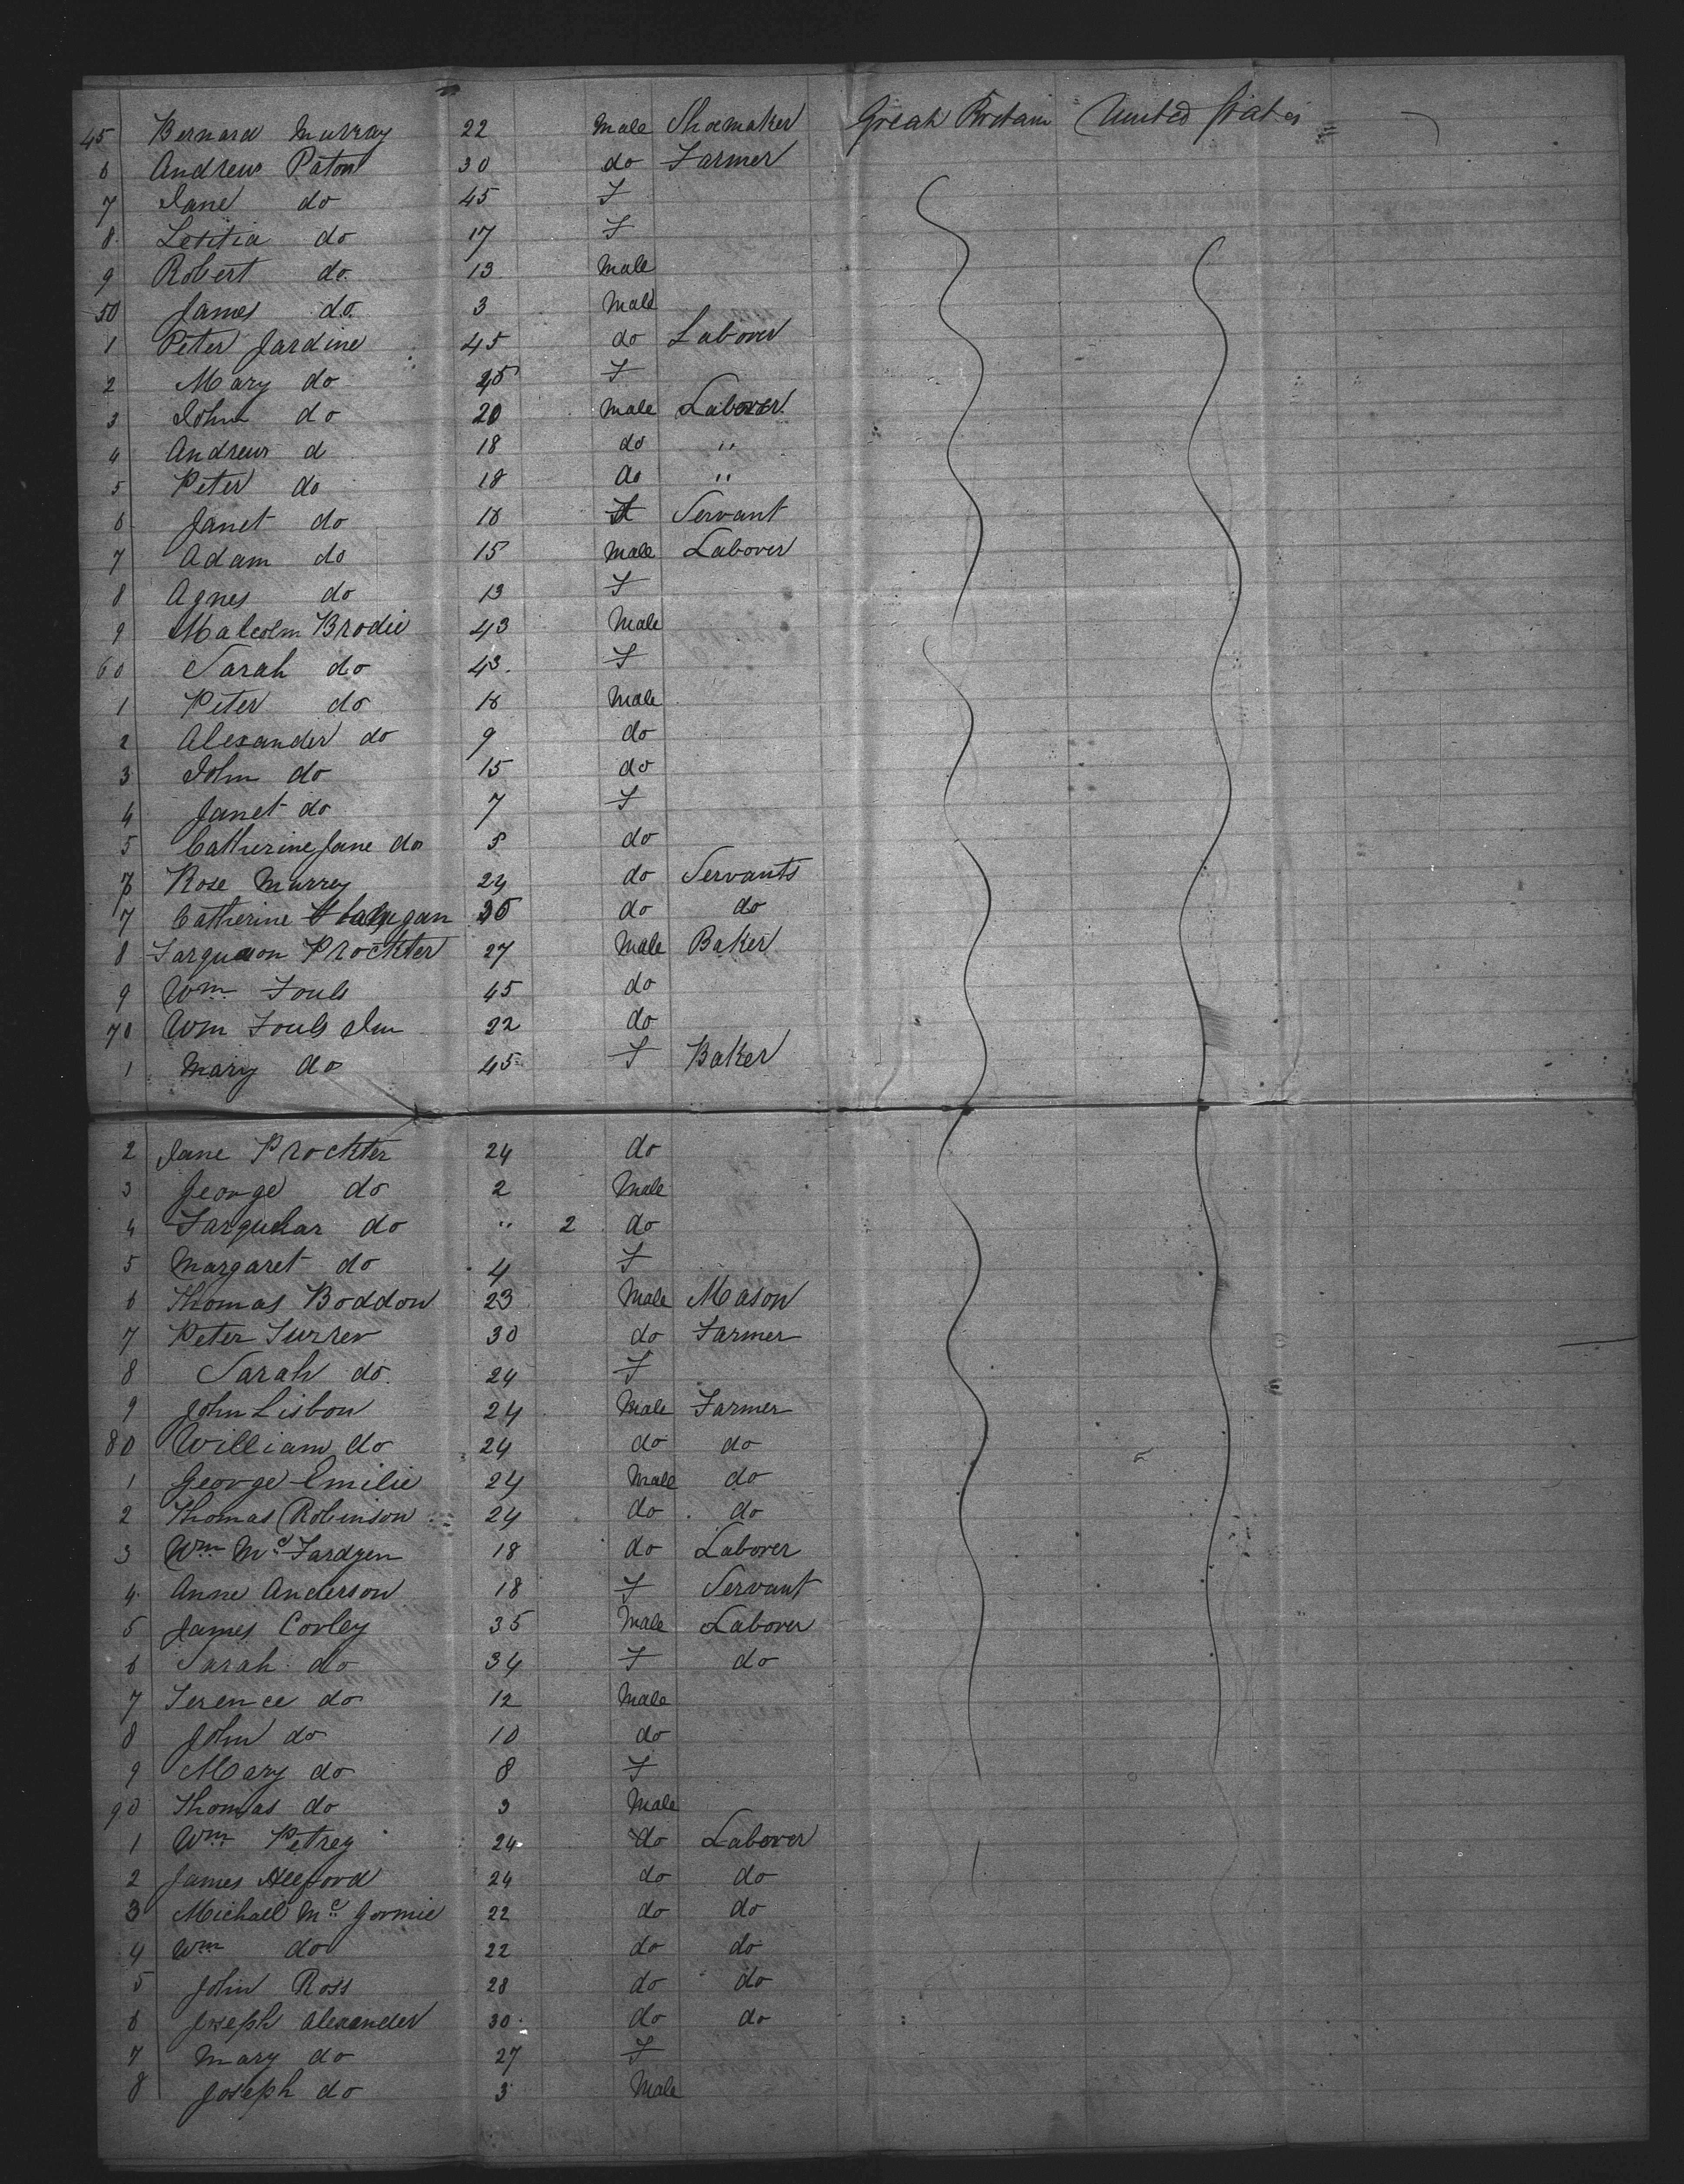 45 Bernard Murray 22 Male Shoemaker Great Britain United States
6 Andrew Paton 30 do Farmer
7 Jane do 45 F
8 Letitia do 17 F
9 Robert do 13 Male
50 James do 3 Male
1 Peter Jardine 45 do Laborer
2 Mary do 45 F
3 John do 20 Male Laborer
4 Andrew d 18 do "
5 Peter do 18 do "
6 Janet do 16 F Servant
7 Adam do 15 Male Laborer
8 Agnes do 13 F
9 Malcolm Brodie 43 Male
60 Sarah do 43 F
1 Peter do 18 Male
2 Alexander do 9 do
3 John do 15 do
4 Janet do 7 F
5 Catherine Jane do 5 do
6 Rose Murrey 24 do Servants
7 Catherine do do
8 Prockter 27 Male Baker
9 Wm Fouls 45 do
70 Wm Fouls 22 do
1 Mary do 45 F Baker
2 Jane Prockter 24 do
3 George do 2 Male
4 Farquhar do " 2 do
5 Margaret do 4 F
6 Thomas Boddon 23 Male Mason
7 Peter Surrer 30 do Farmer
8 Sarah do 24 F
9 John Lisbon 24 Male Farmer
80 William do 24 do do
1 George Emilie 24 Male do
2 Thomas Robinson 24 do do
3 Wm Mc Fardyen 18 do Laborer
4 Anne Anderson 18 F Servant
5 James Corley 35 Male Laborer
6 Sarah do 34 F do
7 Terence do 12 Male
8 John do 10 do
9 Mary do 8 F
90 Thomas do 3 Male
1 Wm Petrey 24 do Laborer
2 James 24 do do
3 Michael Mc Gormie 22 do do
4 Wm do 22 do do
5 John Ross 28 do do
6 Joseph Alexander 30 do do
7 Mary do 27 F
8 Joseph do 3 Male